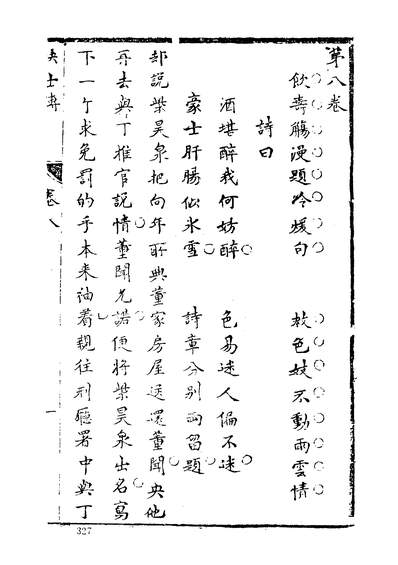 第八卷
飲壽觴漫題冷煖句 救色妓不動雨雲情
詩曰
酒堪醉我何妨醉 色易迷人偏不迷
豪士肝腸似氷雪 詩章分別兩留題
却説柴昊泉把向年所典董家房屋送還董聞央他
再去與丁推官説情董聞允諾便将柴昊泉出名寫
下一个求免罰的手本来袖着親往刑廳署中與丁
卷八
一
327